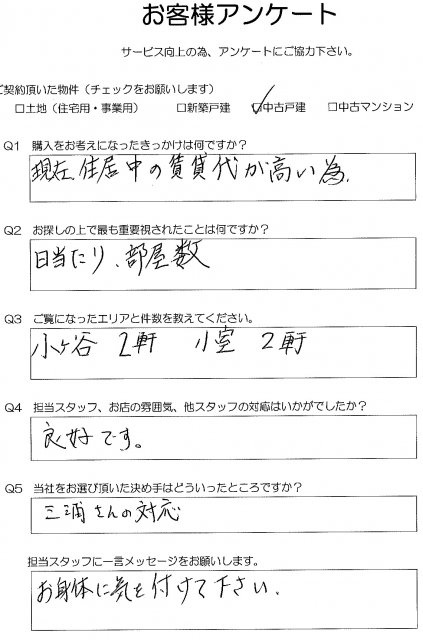 お客様アンケート
サービス向上の為、アンケートにご協力下さい。
ご契約頂いた物件（チェックをお願いします）
□土地（住宅用・事業用） □新築戸建 ☑中古戸建 □中古マンション
Q1 購入をお考えになったきっかけは何ですか？
現在、住居中の賃貸代が高い為、
Q2 お探しの上で最も重要視されたことは何ですか？
日当たり、部屋数
Q3 ご覧になったエリアと件数を教えてください。
小ヶ谷 2軒 小室 2軒
Q4 担当スタッフ、お店の雰囲気、他スタッフの対応はいかがでしたか？
良好です。
Q5 当社をお選び頂いた決め手はどういったところですか？
三浦さんの対応
担当スタッフに一言メッセージをお願いします。
お身体に気を付けて下さい．